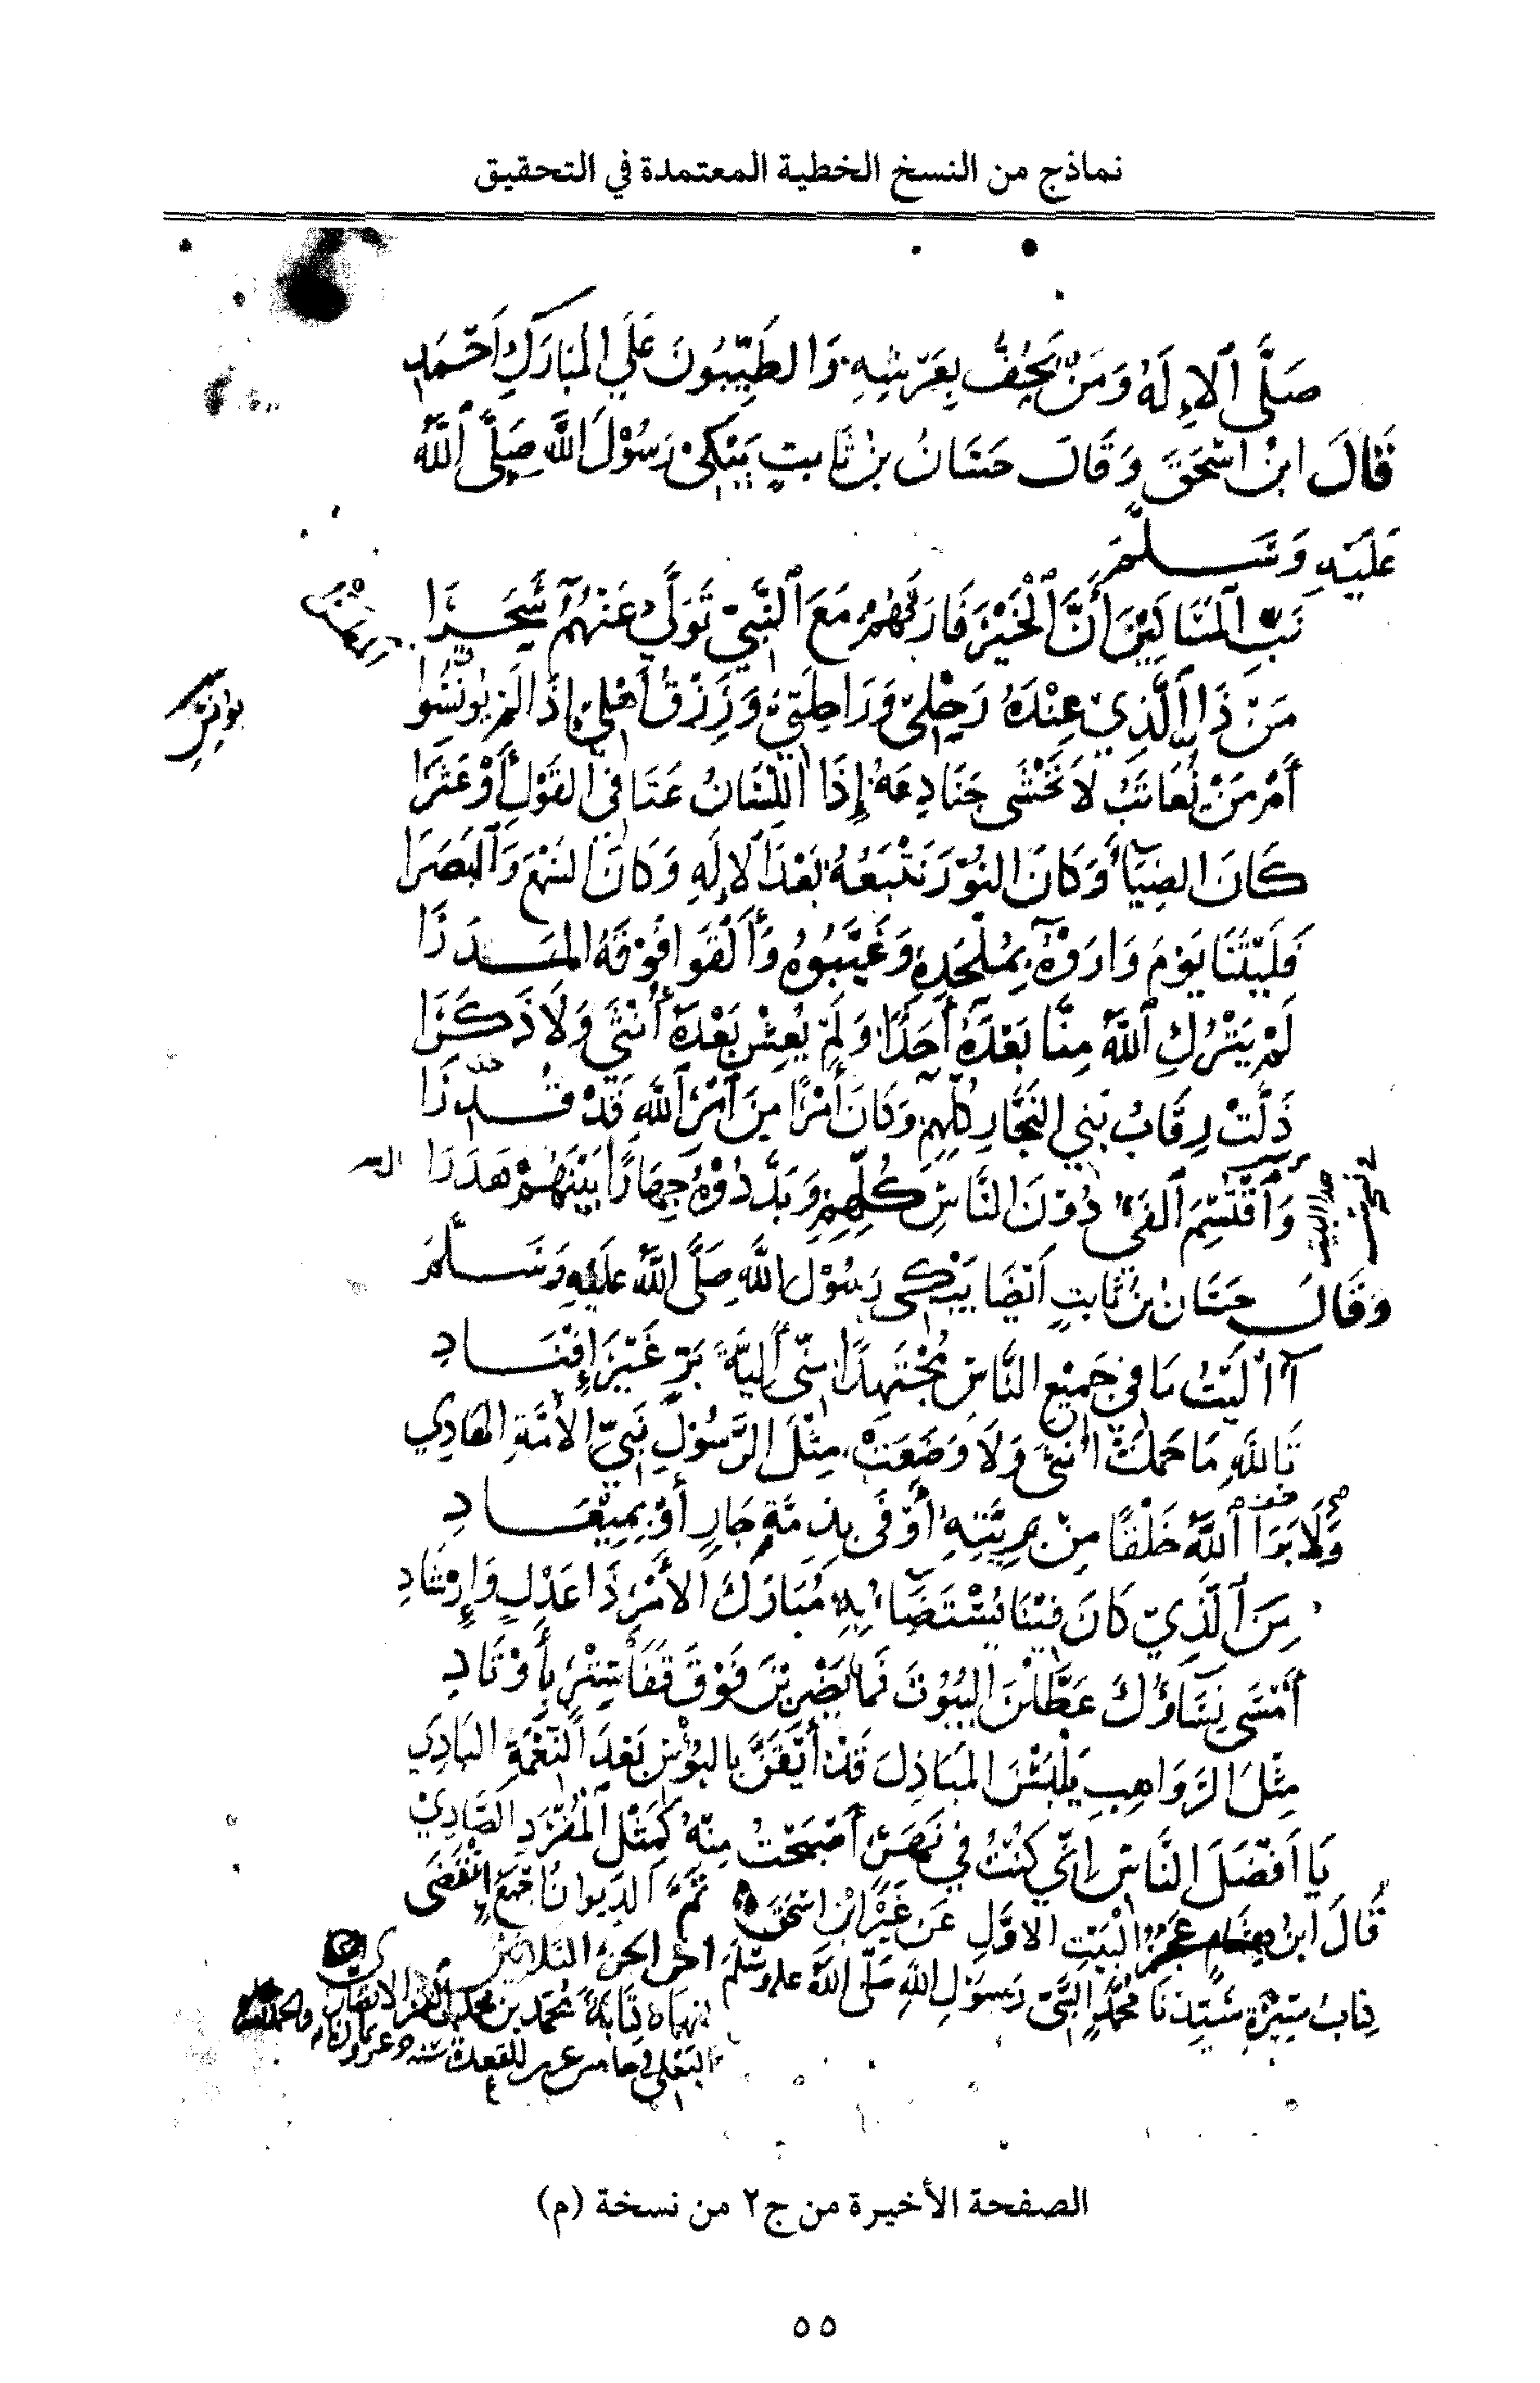 نماذج من النسخ الخطية المعتمدة في التحقيق
صَلَّى ٱلإِلَهُ وَمَنْ يَحُفُّ بِعَرْشِهِ وَالطَّيِّبُونَ عَلَى المُبَارَكِ أَحْمَدِ
قَالَ ابنُ اسْحَقَ وَقَالَ حَسَّانُ بنُ ثَابتٍ يَبْكِي رَسُوْلَ اللَّه صَلَّى ٱللَّهُ
عَلَيْهِ وَسَلَّمَ
نَبِّ ٱلمَسَاكِيْنَ أَنَّ ٱلْخَيْرَ فَارَقَهُمُ مَعَ ٱلنَّبِيّ تَوَلَّى عَنْهُمُ سَحَرَا
مَنْ ذَا ٱلَّذِي عِنْدَهُ رَحْلِي وَرَاحِلَتِي وَرِزْقُ أَهْلِي إِذَا لَمْ يُونِسُوا
يونس
أَمْ مَنْ نُعَاتِبُ لَا نَخْشَى جَنَادِعَهُ إِذَا اللِّسَانُ عَتَا فِي القَوْلِ أَوْ عَثَرَا
كَانَ الضِيَاءُ وَكَانَ النُوْرَ نَتْبَعُهُ بَعْدَ ٱلإِلَهِ وَكَانَ السَّمْعَ وَٱلبَصَرَا
فَلَيْتَنَا يَوْمَ وَارَوْهُ بِمُلْحَدِهِ وَغَيَّبُوهُ وَأَلْقَوا فَوْقَهُ المَدَرَا
لَمْ يَتْرُكِ ٱللَّهُ مِنَّا بَعْدَهُ أَحَدًا وَلَمْ يُعِشْ بَعْدَهُ أُنْثَى وَلَا ذَكَرَا
ذَلَّتْ رِقَابُ بَنِي النَجَّارِ كُلِّهِمِ وَكَانَ أَمْرًا مِنَ ٱمْرِ ٱللَّهِ قَدْ قُدِّرَا
وَٱقْتُسِمَ ٱلفَيْءُ دُوْنَ النَّاسِ كُلِّهِمِ وَبَدَّدُوْهُ جِهَارًا بَيْنَهُمْ هَدَرَا
وَقَالَ حَسَّان بنُ ثَابتٍ اَيْضًا يَبْكِي رَسُوْلَ اللَّهِ صَلَّى اللَّهُ عَلَيْهِ وَسَلَّمَ
آلَيْتُ مَا فِي جَمِيْعِ النَّاسِ مُجْتَهِدًا مِنِّي أَلِيَّةَ بَرٍّ غَيْرَ إِفْنَادِ
تَاللَّهِ مَا حَمَلَتْ أُنْثَى وَلَا وَضَعَتْ مِثْلَ الرَّسُوْلِ نَبِيّ الأُمَّةِ الهَادِي
وَلَا بَرَا ٱللَّهُ خَلْقًا مِنْ بَرِيَّتِهِ أَوْفَى بِذِمَّةِ جَارٍ أَوْ بِمِيْعَادِ
مِنَ ٱلَّذِي كَانَ فِيْنَا يُسْتَضَاءُ بِهِ مُبَارَكَ الأَمْرِ ذَا عَدْلٍ وَإِرْشَادِ
أَمْسَى نِسَاؤُكَ عَطَّلْنَ البُيُوْتَ فَمَا يَضْرِبْنَ فَوْقَ قَفَا سِتْرٍ بِأَوْتَادِ
مِثْلَ الرَّوَاهِبِ يَلْبَسْنَ المَبَاذِلَ قَدْ أَيْقَنَّ بِالبُؤْسِ بَعْدَ النِّعْمَةِ البَادِي
يَا اَفْضَلَ النَّاسِ إِنِّي كُنْتُ فِي نَهَرٍ أَصْبَحْتُ مِنْهُ كَمِثْلِ ٱلْمُفْرَدِ الصَّادِيْ
قَالَ ابنُ هِشَامٍ عَجُزُ البَيْتِ الاوَّلِ عَن غَيْرِ ابْنِ اسْحَقَ
تَمَّ الدِيوانُ أجْمَعُ
انقَضَى
كِتَابُ سِيْرَةِ سَيِّدِنَا مُحَمَّدٍ النَّبيّ رَسُوْلِ اللَّهِ صَلَّى اللَّهُ عليه وسَلَّمَ
اخر الجزء الثلاثين
محمد بن محمد
الصفحة الأخيرة من ج٢ من نسخة (م)
٥٥